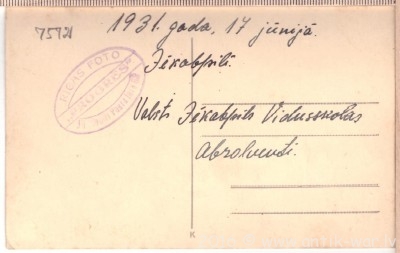 75721
1931. gada, 17 jūnijā.
Jēkabpilī.
RIGAS FOTO
Valsts Jēkabpils Vidusskolas
Absolventi.
K